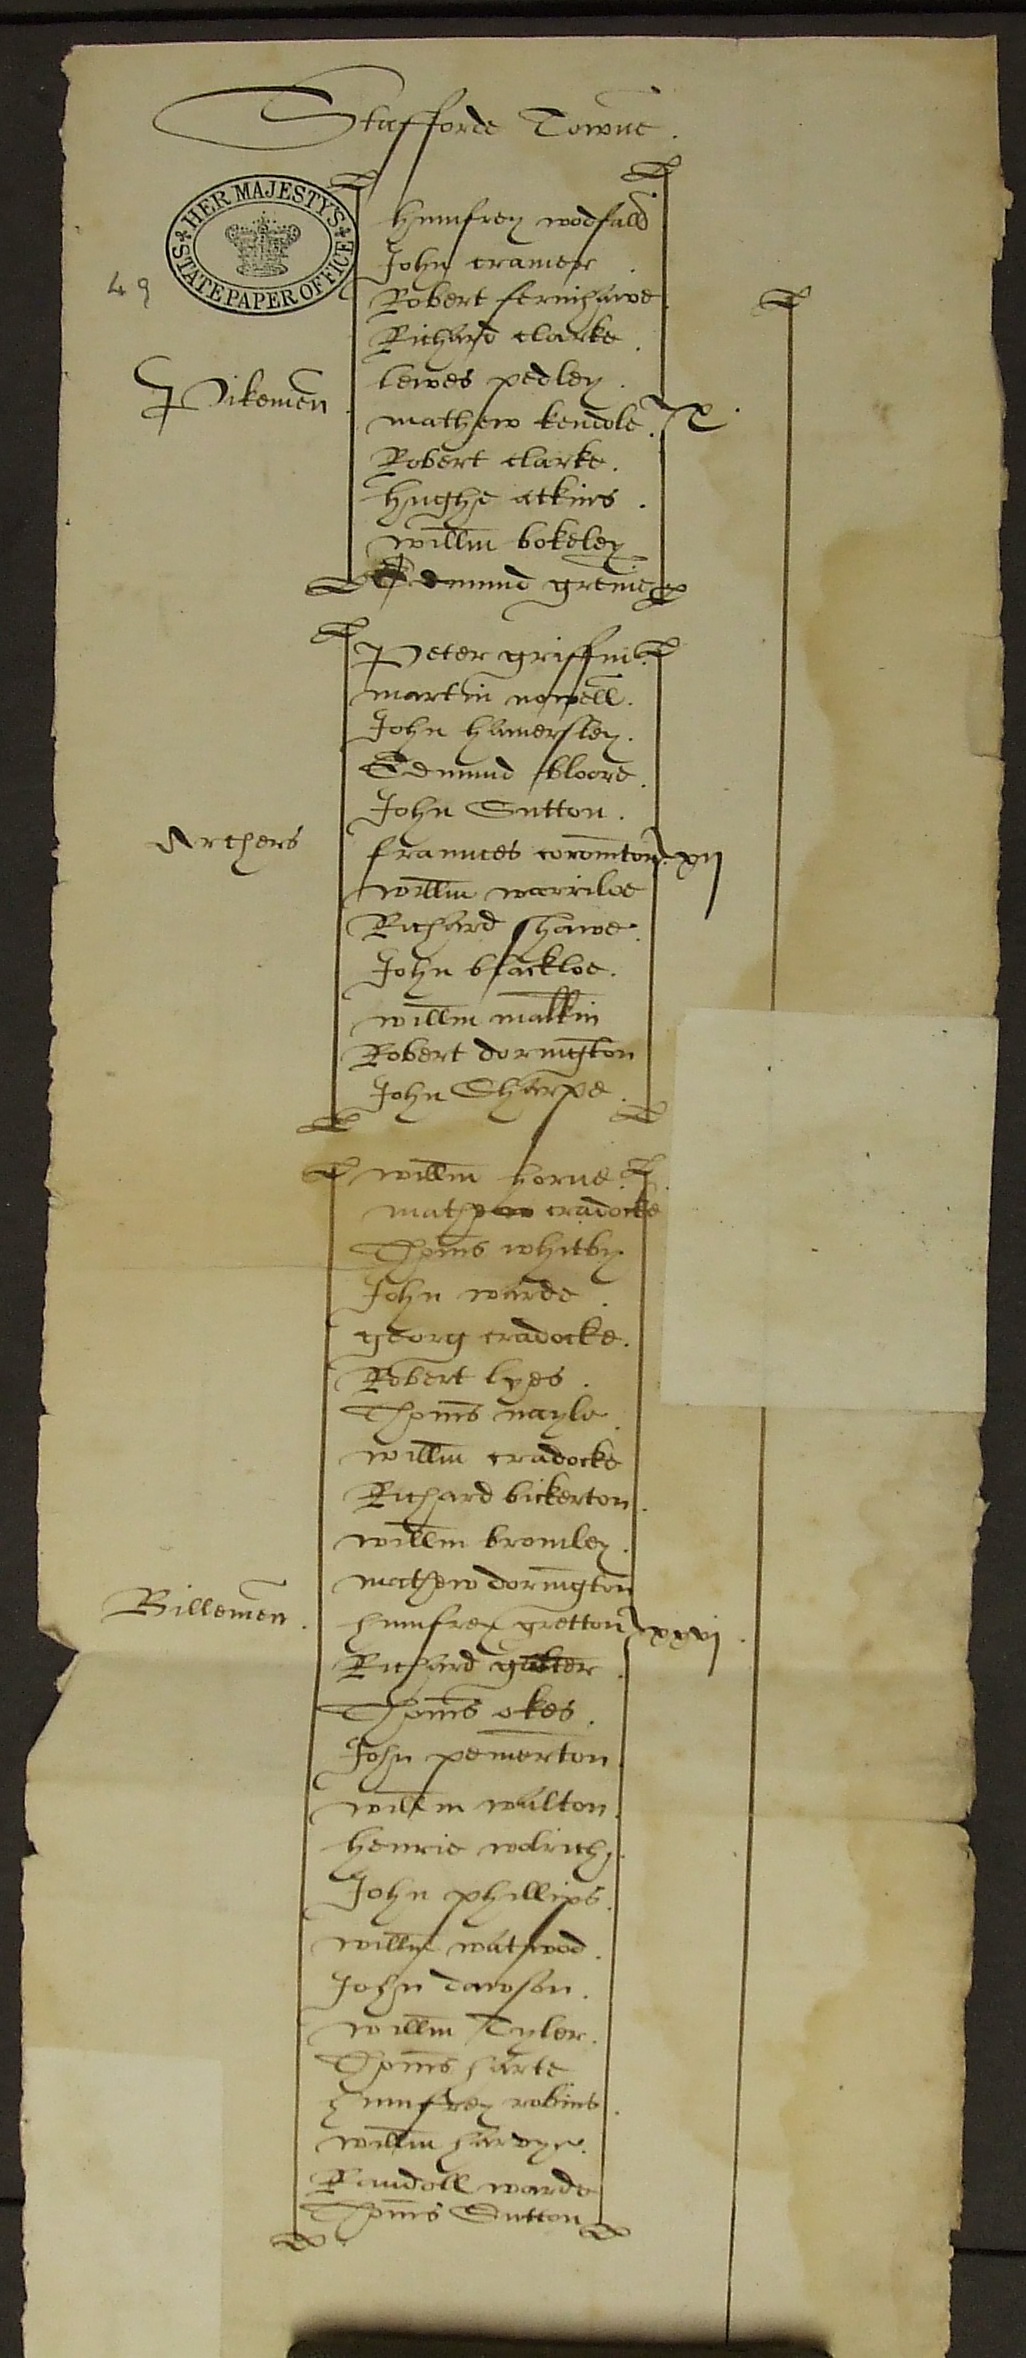 Stafforde Towne.
HER MAJESTY'S
STATE PAPER OFFICE
49
humfrey wodfald
John cramer
Robert fernihawe
Richard clarke
Pikemen
lewes pedley
mathew kendole
x
Robert clarke.
hughe atkins.
willm bokeley
Edmund grene
Peter griffin
martin nowell.
John hamersley.
Edmund bloore
John Sutton.
Archers
fraunces coromton
xij
willm warriloe
Richard shawe.
John blackloe.
willm malkin
Robert dorington
John Sharpe
willm horne.
mathew cradocke
Thoms whitby
John warde
georg cradocke.
Robert lyes.
Thoms nayle
willm cradocke
Richard bickerton.
willm bromley.
mathew dorington
Billemen.
humfrey gretton
xxvj.
Richard
Thoms okes.
John pemerton
willm walton.
henrie wolrich
John phillips
willm watwod.
John dawson.
willm Tyler.
Thoms harte
humfrey robins
willm harvye.
Randoll warde
Thoms Sutton